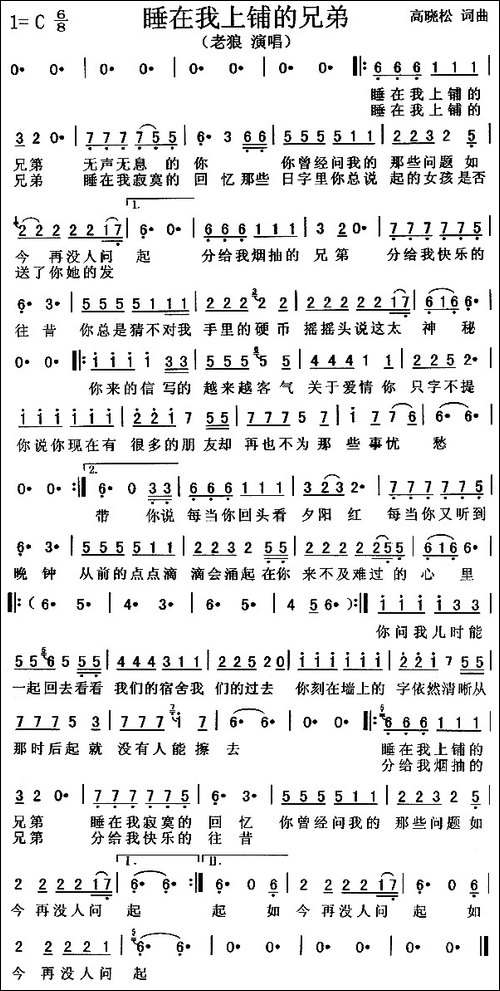 睡在我上铺的兄弟
1=C 6/8
高晓松 词曲
（老狼 演唱）
0• 0• 0• 0• 0• 0• 6 6 6 1 1 1
睡在我上铺的
睡在我上铺的
3 2 0• 7 7 7 7 5 5 6• 3 6 6 5 5 5 5 1 1 2 2 3 2 5
兄弟 无声无息的你 你曾经问我的那些问题如
兄弟 睡在我寂寞的回忆那些日字里你总说起的女孩是否
1.
2 2 2 2 2 17 6• 0• 6 6 6 1 1 1 3 2 0• 7 7 7 7 7 5
今再没人问起 分给我烟抽的兄第 分给我快乐的
送了你她的发
6• 3• 5 5 5 5 1 1 1 2 2 2 3 2 2 2 2 2 2 2 17 6 1 6 6•
往昔 你总是猜不对我手里的硬币 摇摇头说这太神秘
0• 0• i i i i 33 5 5 5 5 5 4 4 4 1 1 2 2 5 2•
你来的信写的越来越客气关于爱情你只字不提
i i i i i i 2 2 2 7 55 7 7 7 5 7 i 7 7 6 6• 6•
你说你现在有很多的朋友却再也不为那些事忧愁
2.
0• 0• 6• 0 33 6 6 6 1 1 1 3 2 3 2• 7 7 7 7 7 5
带 你说每当你回头看夕阳红 每当你又听到
6• 3• 5 5 5 5 1 1 2 2 2 2 55 2 2 2 2 2 55 6 1 6 6•
晚钟 从前的点点滴滴会涌起在你来不及难过的心里
（6• 5• 4• 3• 6• 5• 4 5 6•） i i i i 3 3
你问我儿时能
5 5 5 6 5 5 4 4 4 3 1 1 2 2 5 2 0 i i i i i i 2 2 1 7 55
一起回去看看我们的宿舍我们的过去 你刻在墙上的字依然清晰从
7 7 7 5 3 7 7 7 i 7 6• 6• 0• 0• 6 6 6 1 1 1
那时后起就没有人能擦去 睡在我上铺的
分给我烟抽的
3 2 0• 7 7 7 7 7 5 6• 3• 5 5 5 5 1 1 2 2 3 2 5
兄弟 睡在我寂寞的回忆 你曾经问我的那些问题如
兄弟 分给我快乐的往昔
I. II.
2 2 2 2 17 6• 6• 6• 6 0 5 2 2 2 2 17 6• 6 0 5
今再没人问起 起 如今再没人问起 如
2 2 2 2 1 6• 6• 0• 0• 0• 0•
今再没人问起